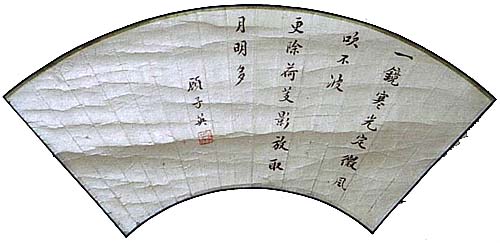 一鏡寒光定微風
吹不波
更除荷芰影放取
月明多
顾子英